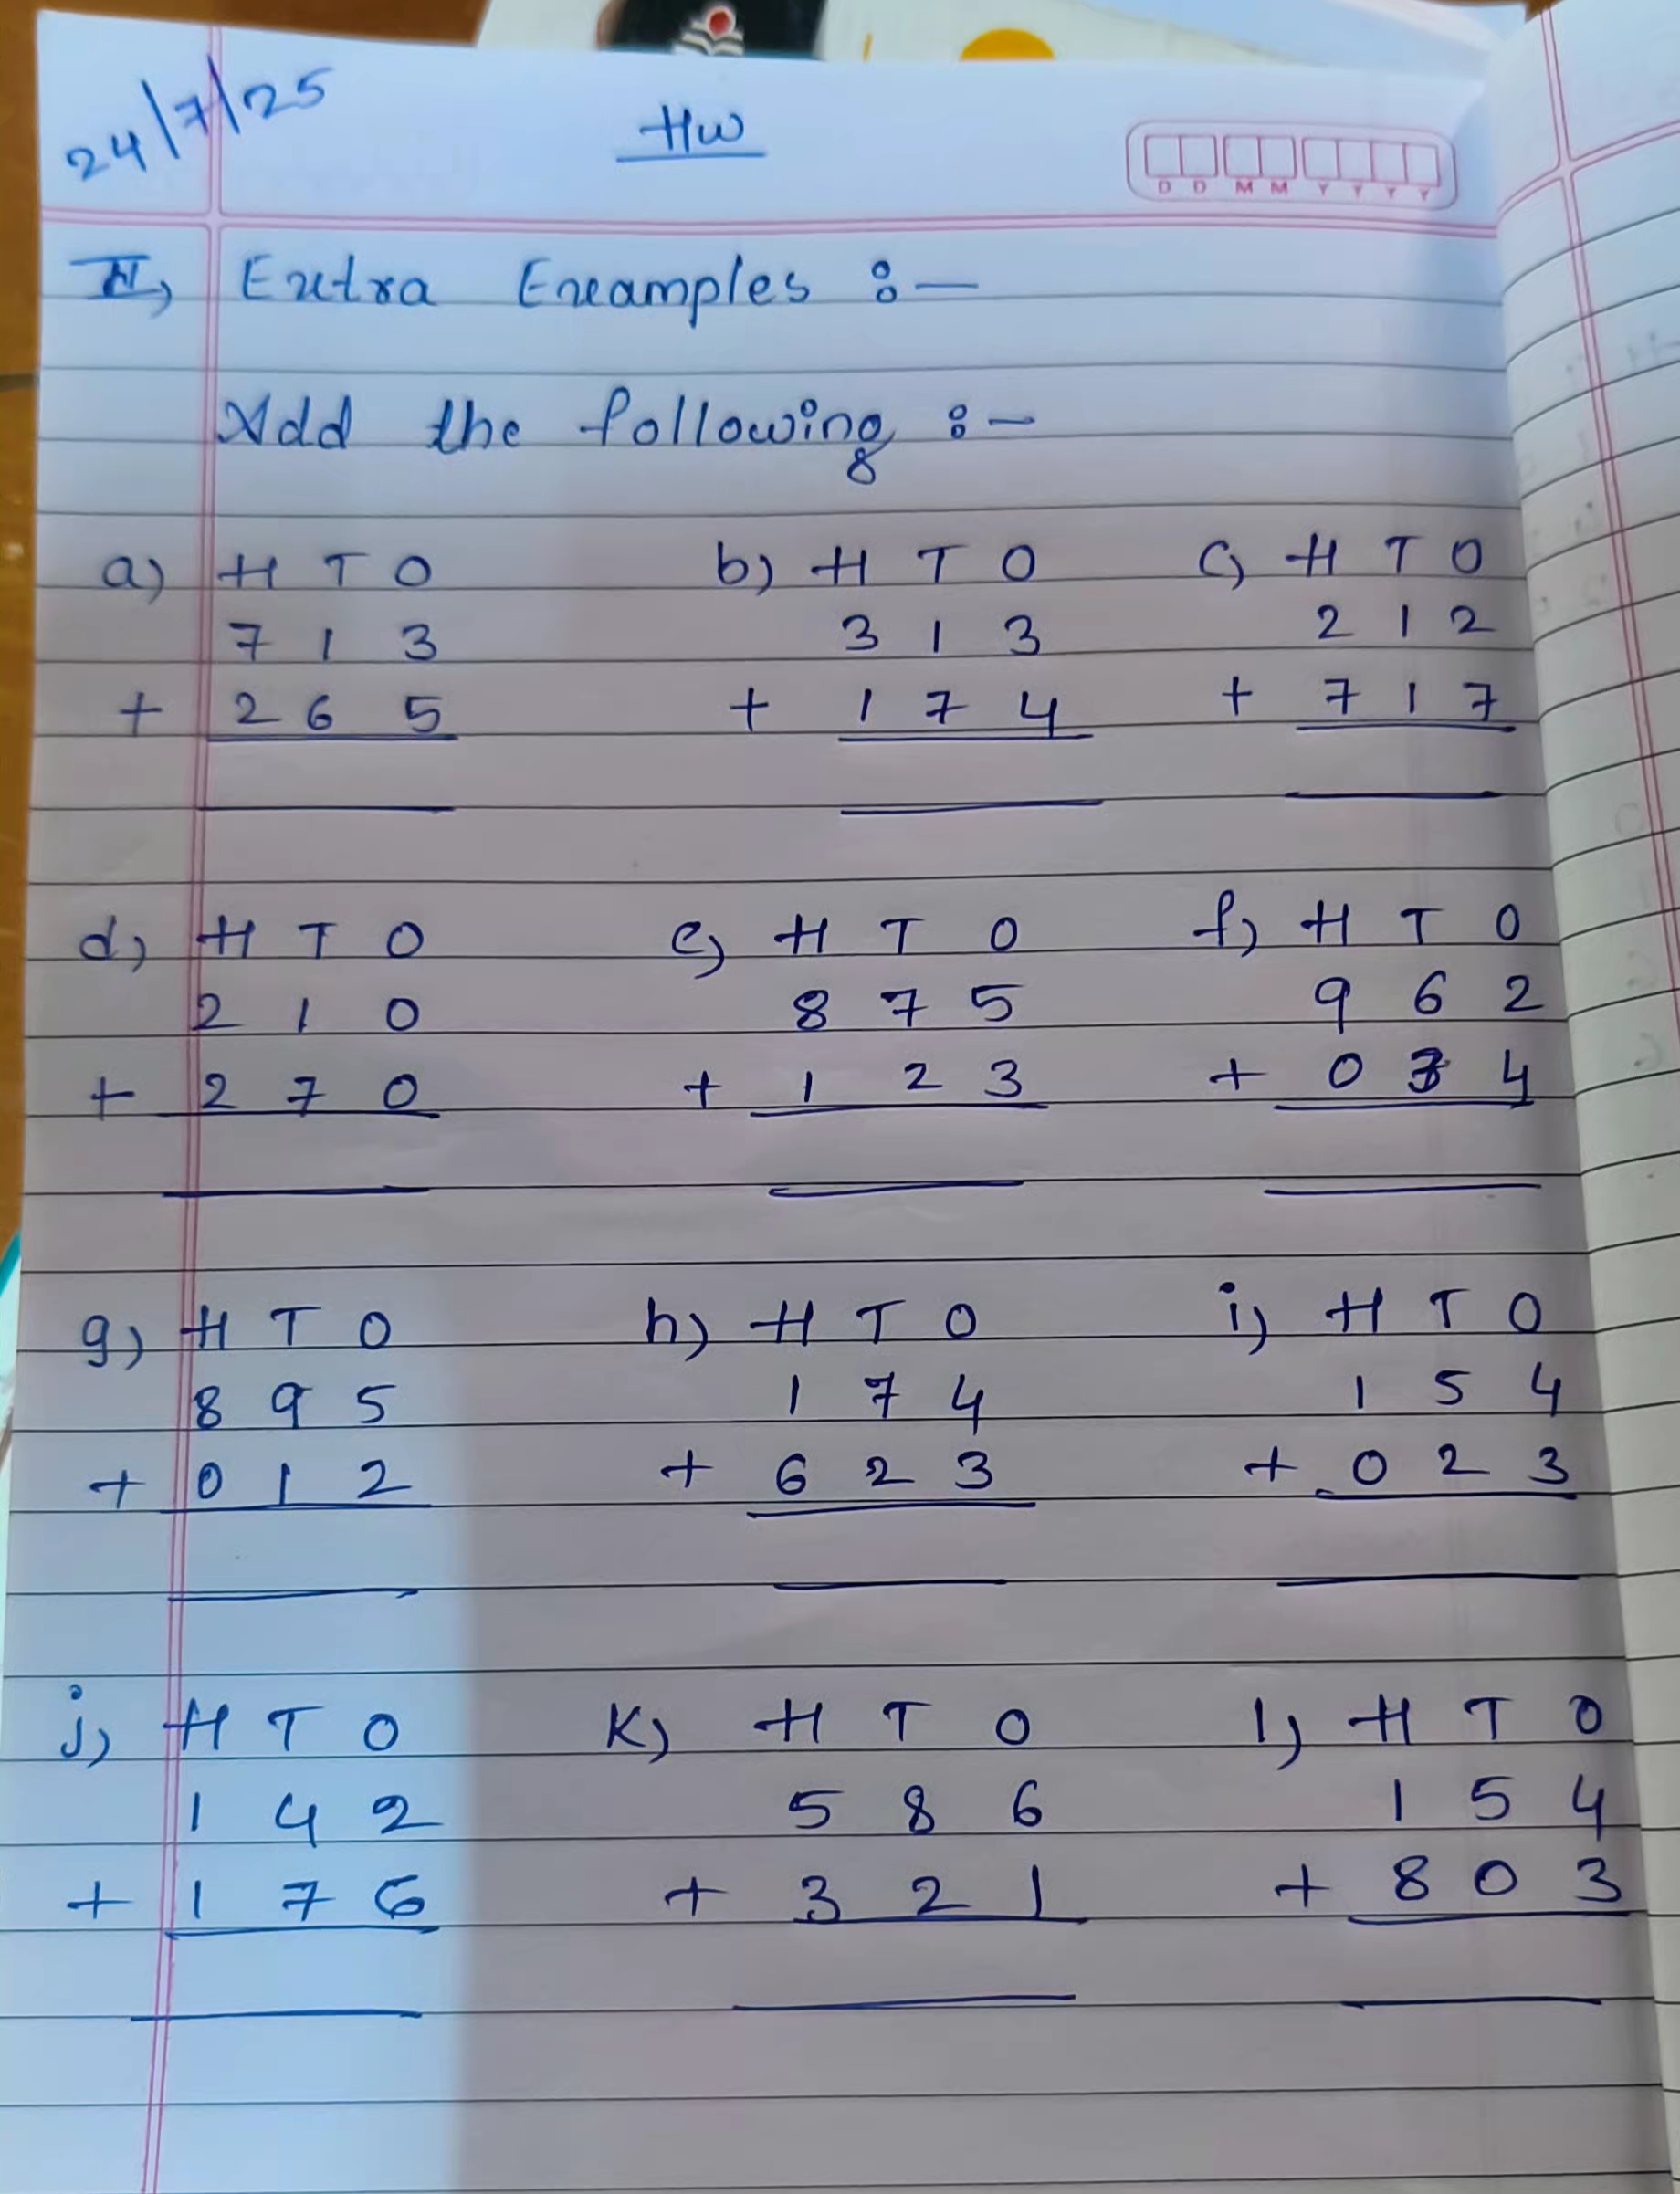 24/7/25
HW
D D M M Y Y Y Y
II) Extra Examples :-
Add the following :-
a) H T O b) H T O c) H T O
7 1 3 3 1 3 2 1 2
+ 2 6 5 + 1 7 4 + 7 1 7
d) H T O e) H T O f) H T O
2 1 0 8 7 5 9 6 2
+ 2 7 0 + 1 2 3 + 0 3 4
g) H T O h) H T O i) H T O
8 9 5 1 7 4 1 5 4
+ 0 1 2 + 6 2 3 + 0 2 3
j) H T O K) H T O l) H T O
1 4 2 5 8 6 1 5 4
+ 1 7 6 + 3 2 1 + 8 0 3